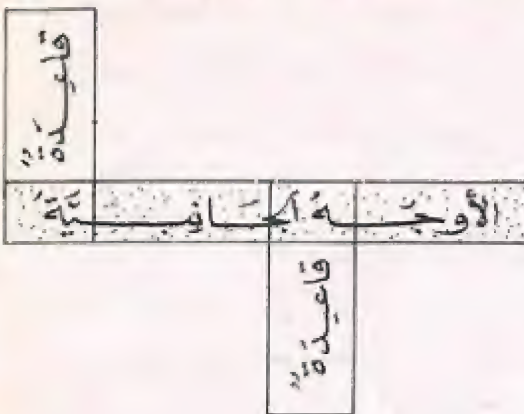 قاعِدَةٌ
الأوجُــهُ الجَــانِبــيَّةُ
قاعِدَةٌ